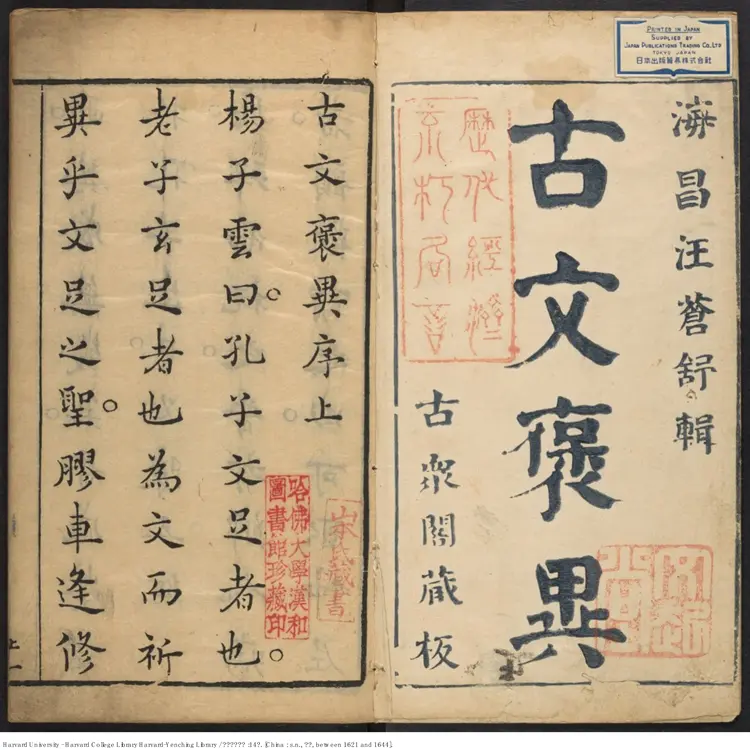 PRINTED IN JAPAN
SUPPLIED BY
JAPAN PUBLICATIONS TRADING CO., LTD
TOKYO JAPAN
日本出版貿易株式會社
海昌汪蒼舒輯
古文褒異
古衆閣藏板
古文褒異序上
楊子雲曰。孔子文足者也。
老子玄足者也為文而祈
異乎文足之聖。膠車逢修
上一
哈佛大學漢和
圖書館珍藏印
Harvard University - Harvard College Library Harvard-Yenching Library / ?????? :14?. [China : s.n., ??, between 1621 and 1644].